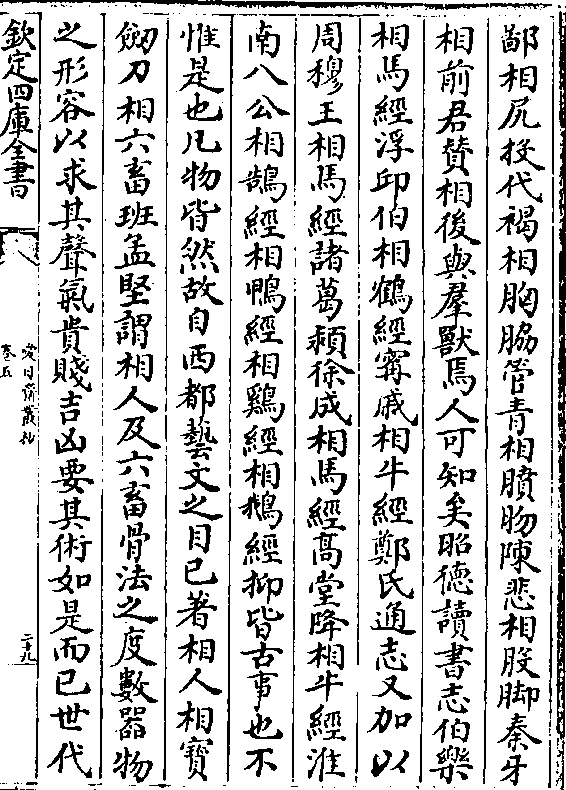 鄙相尻投伐褐相胸脇管青相䐔肳陳悲相股脚秦牙
相前君賛相後與羣獸焉人可知矣昭德讀書志伯樂
相馬經浮邱伯相鶴經甯戚相牛經鄭氏通志又加以
周穆王相馬經諸葛頴徐成相馬經髙堂隆相牛經淮
南八公相鵠經相鴨經相鷄經相鵝經抑皆古事也不
惟是也凡物皆然故自西都藝文之目已著相人相寳
劒刀相六畜班孟堅謂相人及六畜骨法之度數器物
之形容以求其聲氣貴賤吉凶要其術如是而已世代
欽定四庫全書
愛日齋叢抄
卷五
二十九